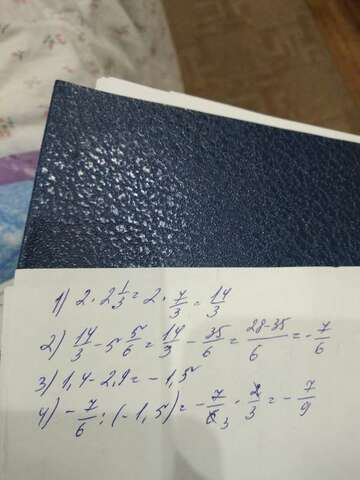 1) 2 · 2 1/3 = 2 · 7/3 = 14/3
2) 14/3 - 5 5/6 = 14/3 - 35/6 = 28-35/6 = - 7/6
3) 1,4 - 2,9 = - 1,5
4) - 7/6 : (- 1,5) = - 7/6 3 · 2/3 = - 7/9